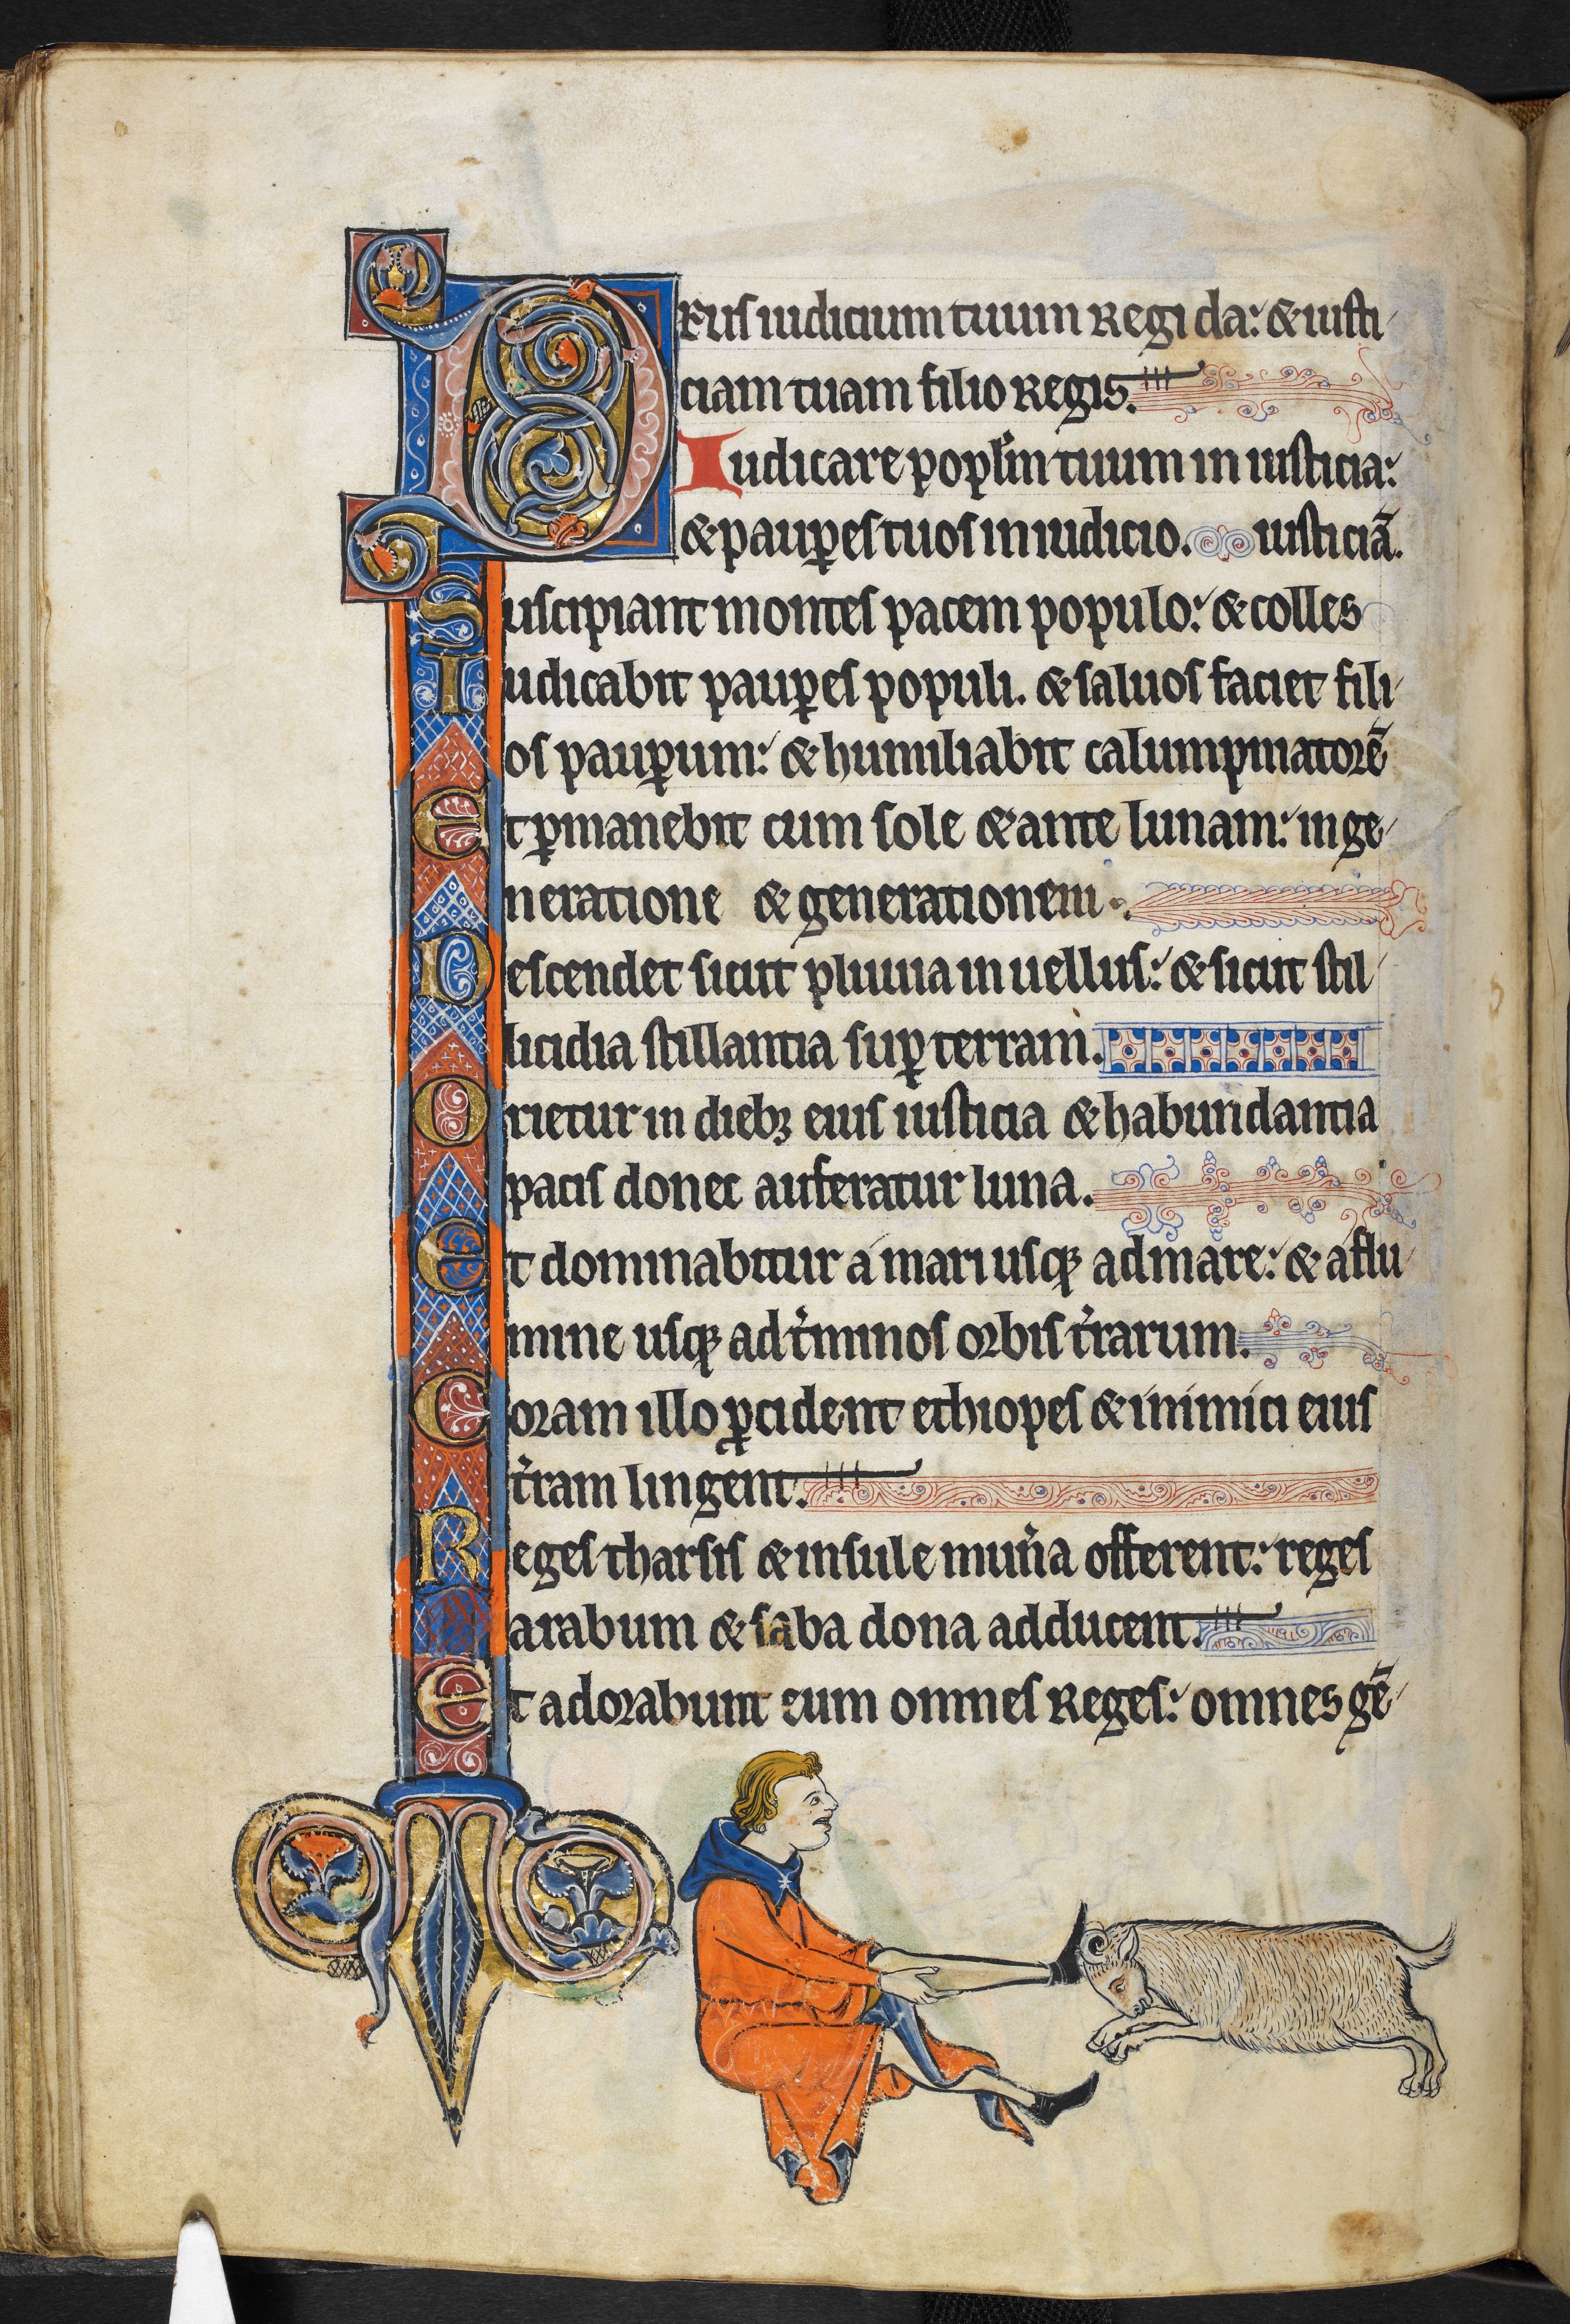 DEus iudicium tuum Regi da: & iusti
ciam tuam filio Regis.
Iudicare popl'm tuum in iusticia:
& paup̲es tuos in iudicio. iusticiā.
Suscipiant montes pacem populo: & colles
Iudicabit paup̲es populi. & saluos faciet fili
os paup̲um: & humiliabit calumpniatorē
Et p̲manebit cum sole & ante lunam: in ge
neratione & generationem.
Descendet sicut pluuia in uellus: & sicut stil
licidia stillantia sup̲ terram.
Orietur in dieb; eius iusticia & habundantia
pacis donec auferatur luna.
Et dominabitur a mari usq; ad mare: & a flu
mine usq; ad t'minos orbis t'rarum.
Coram illo p̲cident ethiopes & inimici eius
t'ram lingent.
Reges tharsis & insule mun'a offerent: reges
arabum & saba dona adducent.
Et adorabunt eum omnes Reges: omnes gē